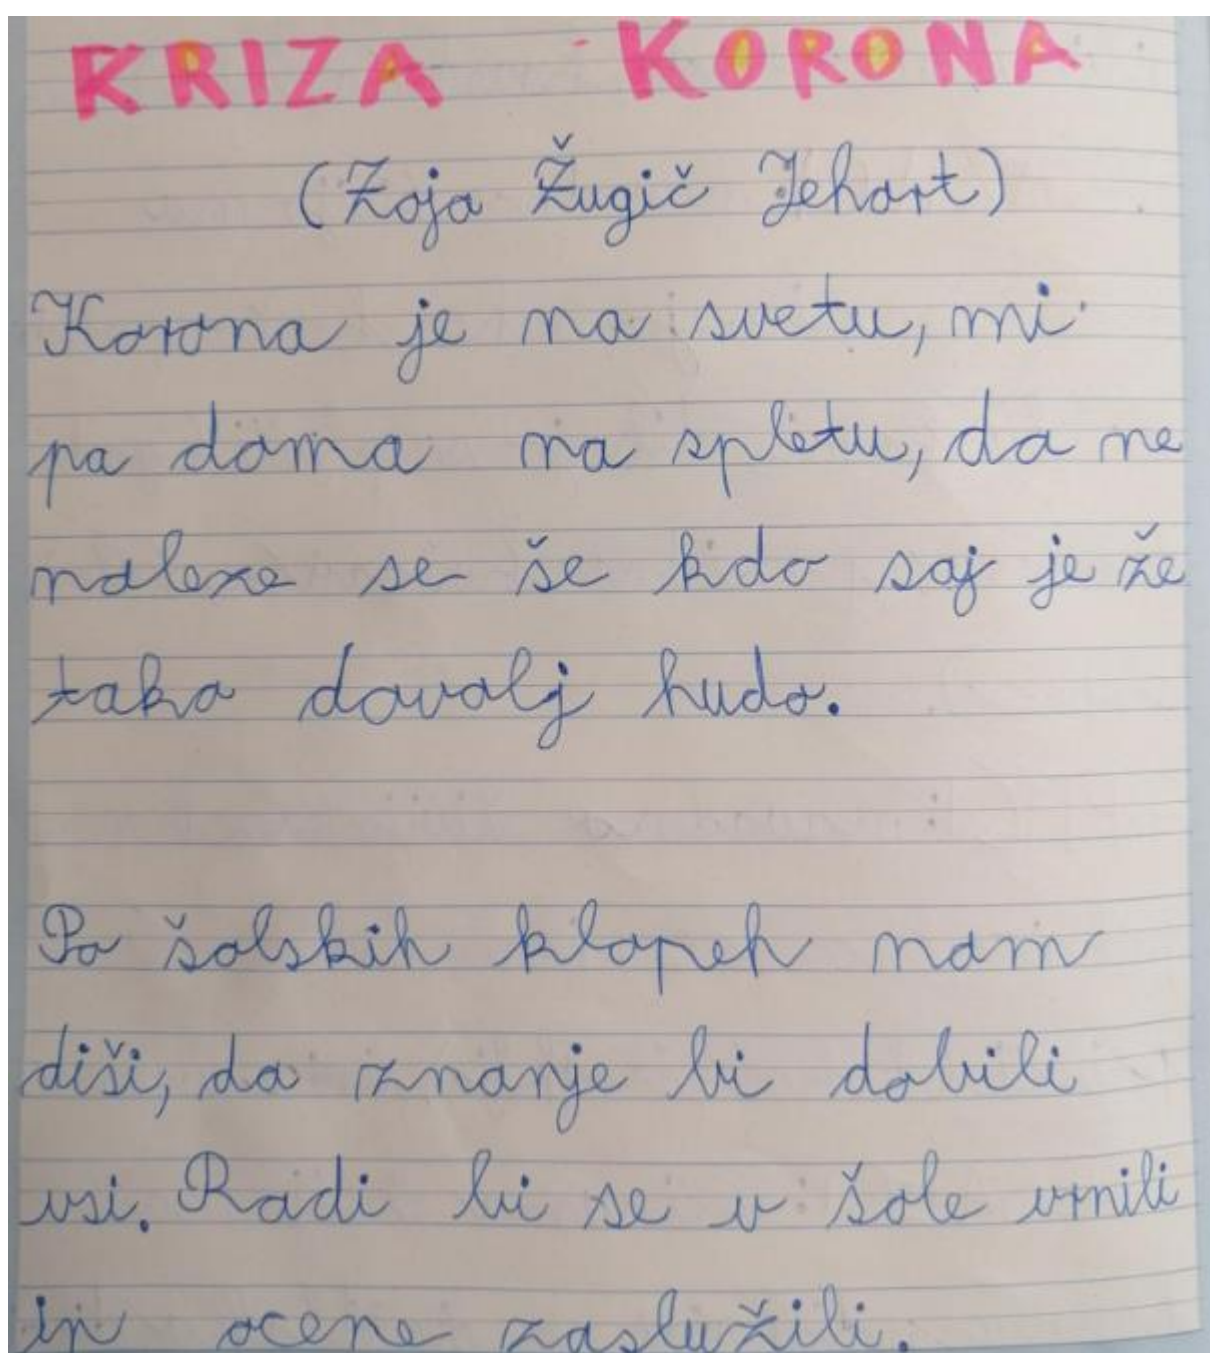 KRIZA KORONA
(Zoja Žugič Jehart)
Korona je na svetu, mi
pa doma na spletu, da ne
naleze se še kdo saj je že
tako dovolj hudo.
Po šolskih klopeh nam
diši, da znanje bi dobili
vsi. Radi bi se v šole vrnili
in ocene zaslužili.